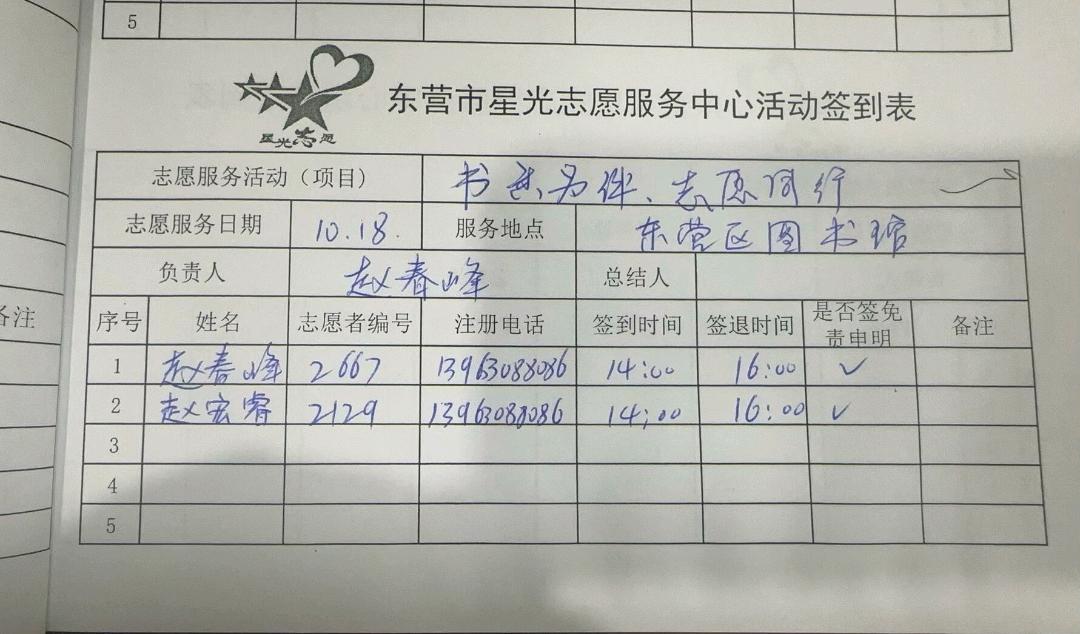 5
星光志愿
东营市星光志愿服务中心活动签到表
志愿服务活动（项目） 书香为伴、志愿同行
志愿服务日期 10.18. 服务地点 东营区图书馆
负责人 赵春峰 总结人
备注
序号 姓名 志愿者编号 注册电话 签到时间 签退时间 是否签免责申明 备注
1 赵春峰 2667 13963088086 14:00 16:00 ✓
2 赵宏睿 2129 13963088086 14:00 16:00 ✓
3
4
5